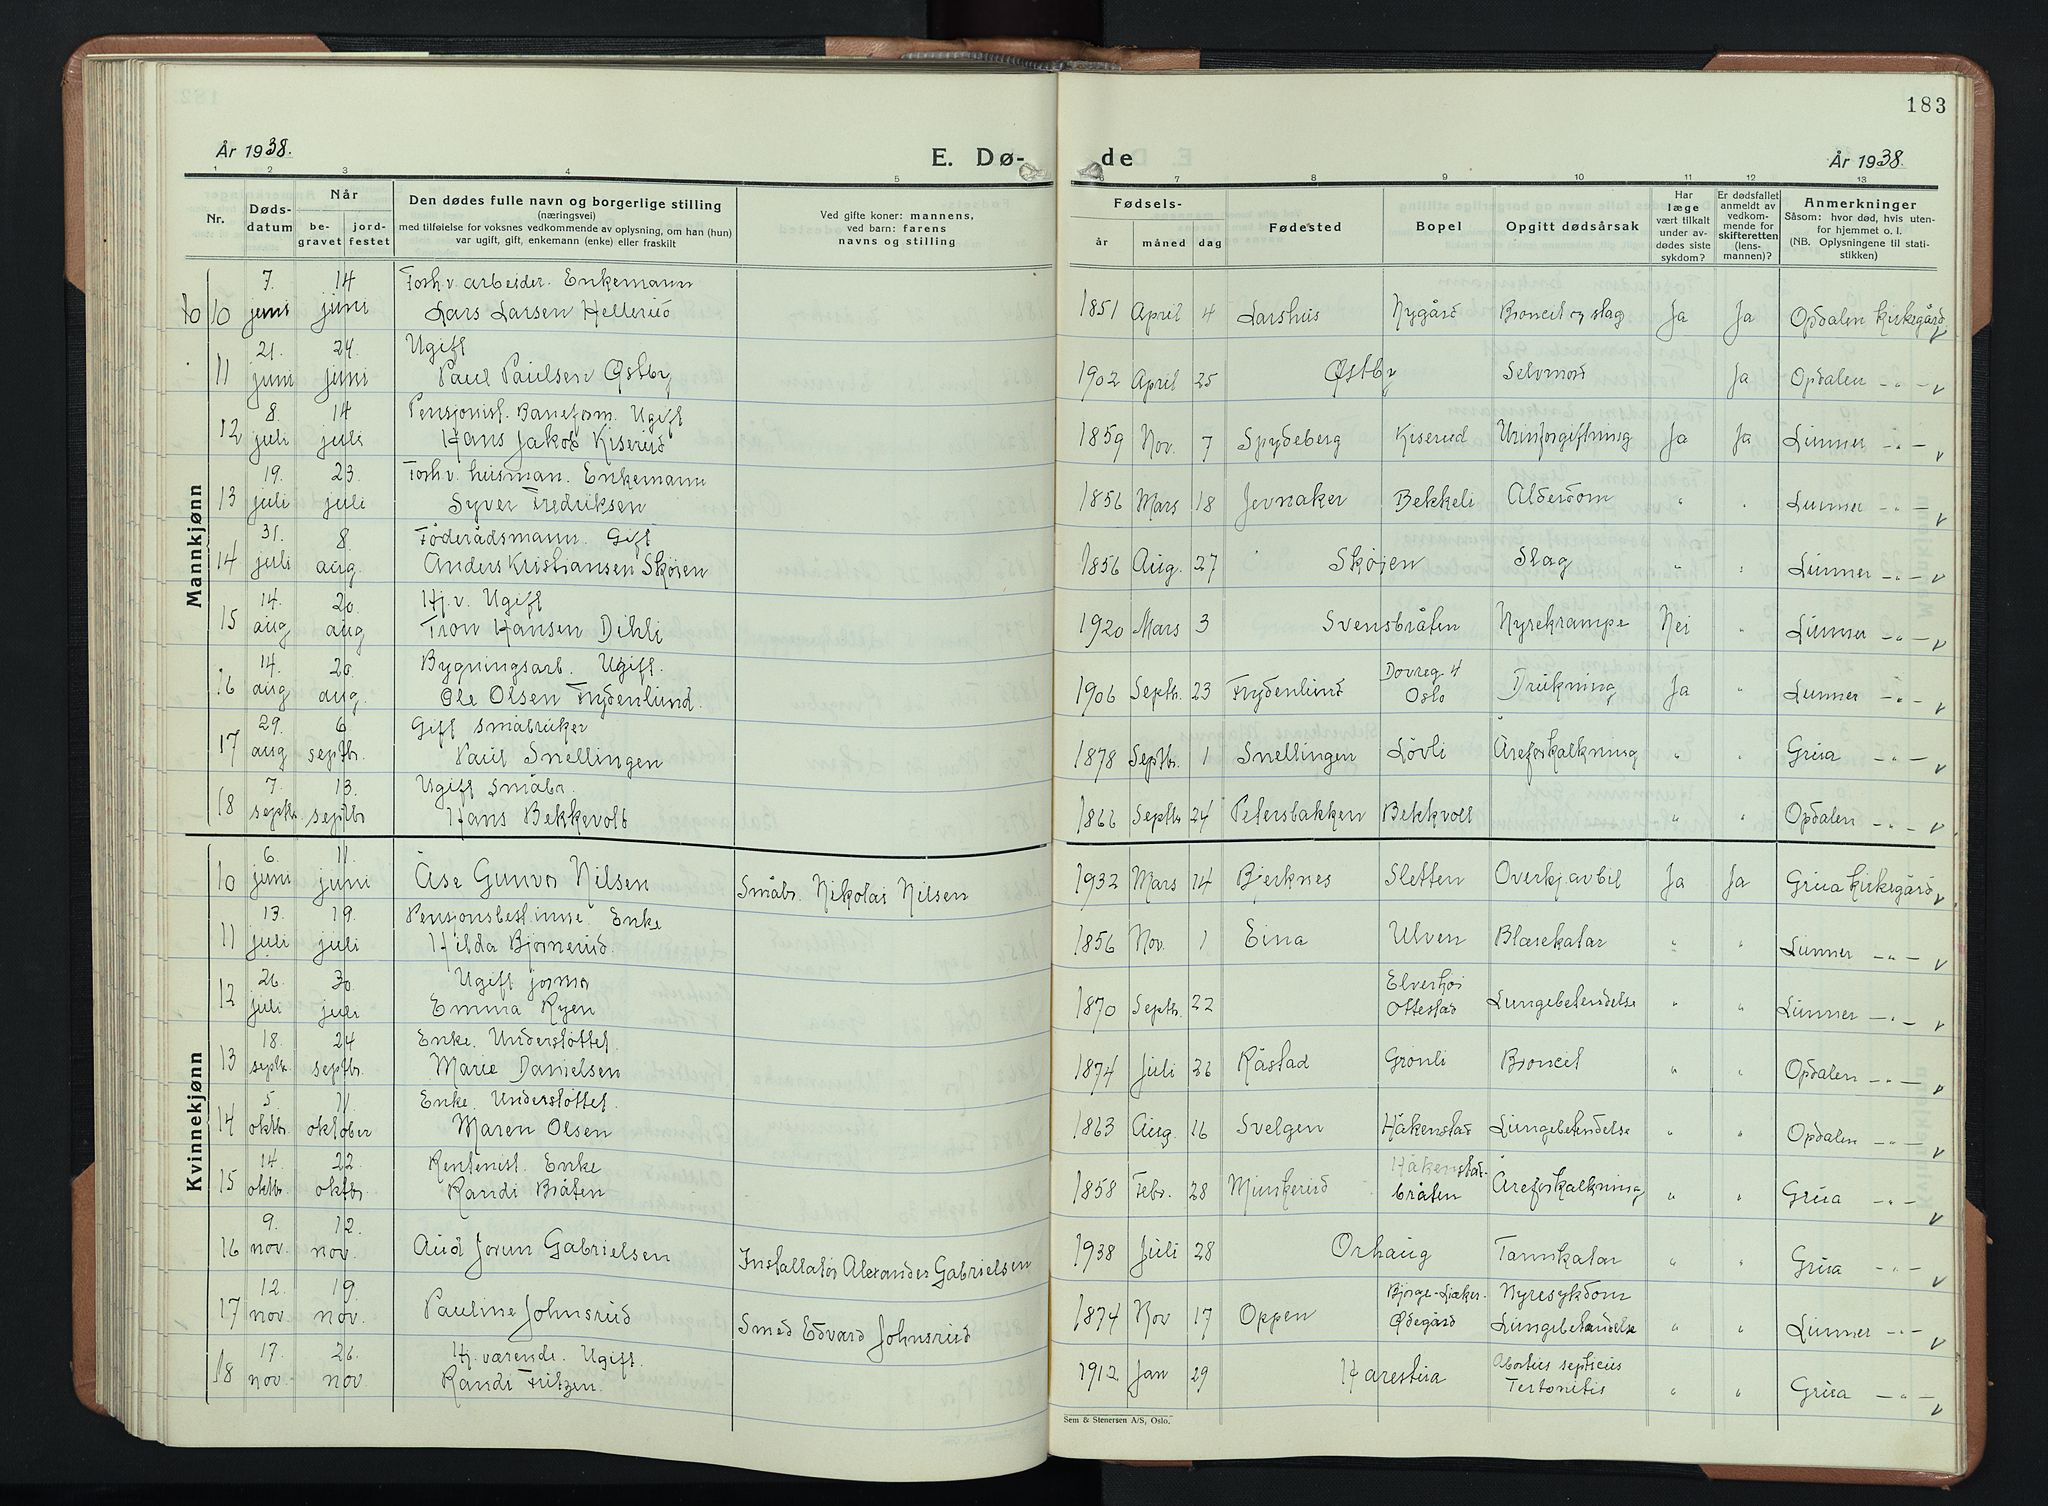 183
År 1938.
E. Dø-
de
År 1938.
1 2 3 4 5 6 7 8 9 10 11 12 13
Nr.
Dødsdatum
Når
begravet
jordfestet
Den dødes fulle navn og borgerlige stilling
(næringsvei)
med tilføielse for voksnes vedkommende av oplysning, om han (hun)
var ugift, gift, enkemann (enke) eller fraskilt
Ved gifte koner: mannens,
ved barn: farens
navns og stilling
Fødsels-
år måned dag
Fødested
Bopel
Opgitt dødsårsak
Har
læge
vært tilkalt
under av-
dødes siste
sykdom?
Er dødsfallet
anmeldt av
vedkom-
mende for
skifteretten
(lens-
mannen)?
Anmerkninger
Såsom: hvor død, hvis uten-
for hjemmet o. l.
(NB. Oplysningene til stati-
stikken)
Mannkjønn
10 7. juni 14 juni Forh.v. arbeider. Enkemann
Lars Larsen Hellerud 1851 April 4 Larshus Nygård Broncit og slag Ja Ja Opdalen Kirkegård
11 21. juni 24. juni Ugift
Paul Paulsen Østby 1902 April 25 Østby Selvmord Ja Opdalen -"-
12 8. juli 14 juli Pensjonist. Baneform. Ugift
Hans Jakob Kiserud 1859 Nov. 7 Spydeberg Kiserud Urinforgiftning Ja Ja Lunner -"-
13 19. juli 23. juli Forh.v. husman. Enkemann
Syver Fredriksen 1856 Mars 18 Jevnaker Bekkeli Alderdom " " Lunner -"-
14 31. juli 8. aug. Föderådsmann. Gift
Anders Kristiansen Skøien 1856 Aug. 27 Skøien Slag " " Lunner -"-
15 14. aug 20. aug Hj.v. Ugift
Tron Hansen Dihli 1920 Mars 3 Svensbråten Nyrekrampe Nei " Lunner -"-
16 14. aug 20. aug. Bygningsarb. Ugift.
Ole Olsen Frydenlund. 1906 Septb. 23 Frydenlund Dovreg. 4
Oslo Drukning Ja " Lunner -"-
17 29. aug 6 septbr. Gift småbruker
Paul Snellingen 1878 Septbr. 1 Snellingen Lövli Åreforkalkning " " Grua -"-
18 7. septb. 13. septbr Ugift Småbr.
Hans Bekkevolt 1866 Septbr 24 Petersbakken Bekkvolt " " Opdalen -"-
Kvinnekjønn
10 6. juni 11. juni Åse Gunvor Nilsen Småbr. Nikolai Nilsen 1932 Mars 14 Bjerknes Sletten Overkj. av bil Ja Ja Grua Kirkegård
11 13. juli 19. juli Pensjonsbestinne. Enke
Hilda Bjørnerud. 1856 Nov. 1 Eina Ulven Blærekatar " " Lunner -"-
12 26. juli 30. juli Ugift jormor
Emma Ryen 1870 Septb. 22 Elverhøi
Ottestad Lungebetendelse " " Lunner -"-
13 18. septb. 24 septbr. Enke. Understöttet.
Marie Danielsen 1874 Juli 26 Råstad Grönli Broncit " " Opdalen -"-
14 5. oktbr. 11. oktober Enke. Understöttet.
Maren Olsen 1863 Aug. 16 Svelgen Håkenstad Lungebetendelse " " Opdalen -"-
15 14. oktbr. 22. oktbr. Rentenist. Enke
Randi Bråten 1858 Febr. 28 Munkerud Håkenstad-
bråten Åreforkalkning " " Grua -"-
16 9. nov. 12. nov. Aud Jorun Gabrielsen Installatør Alexander Gabrielsen 1938 Juli 28 Orhaug Tarmkatar " " Grua -"-
17 12. nov. 19. nov. Pauline Johnsrud Smed Edvard Johnsrud 1874 Nov 17 Oppen Bjørge-
Ødegård Nyresykdom
Lungebetendelse " " Lunner -"-
18 17. nov. 26. nov. Hj. værende. Ugift.
Randi Fritzen. 1912 Jan 29 Harestua Abortus septicus
" " Grua -"-
Sem & Stenersen A/S, Oslo.